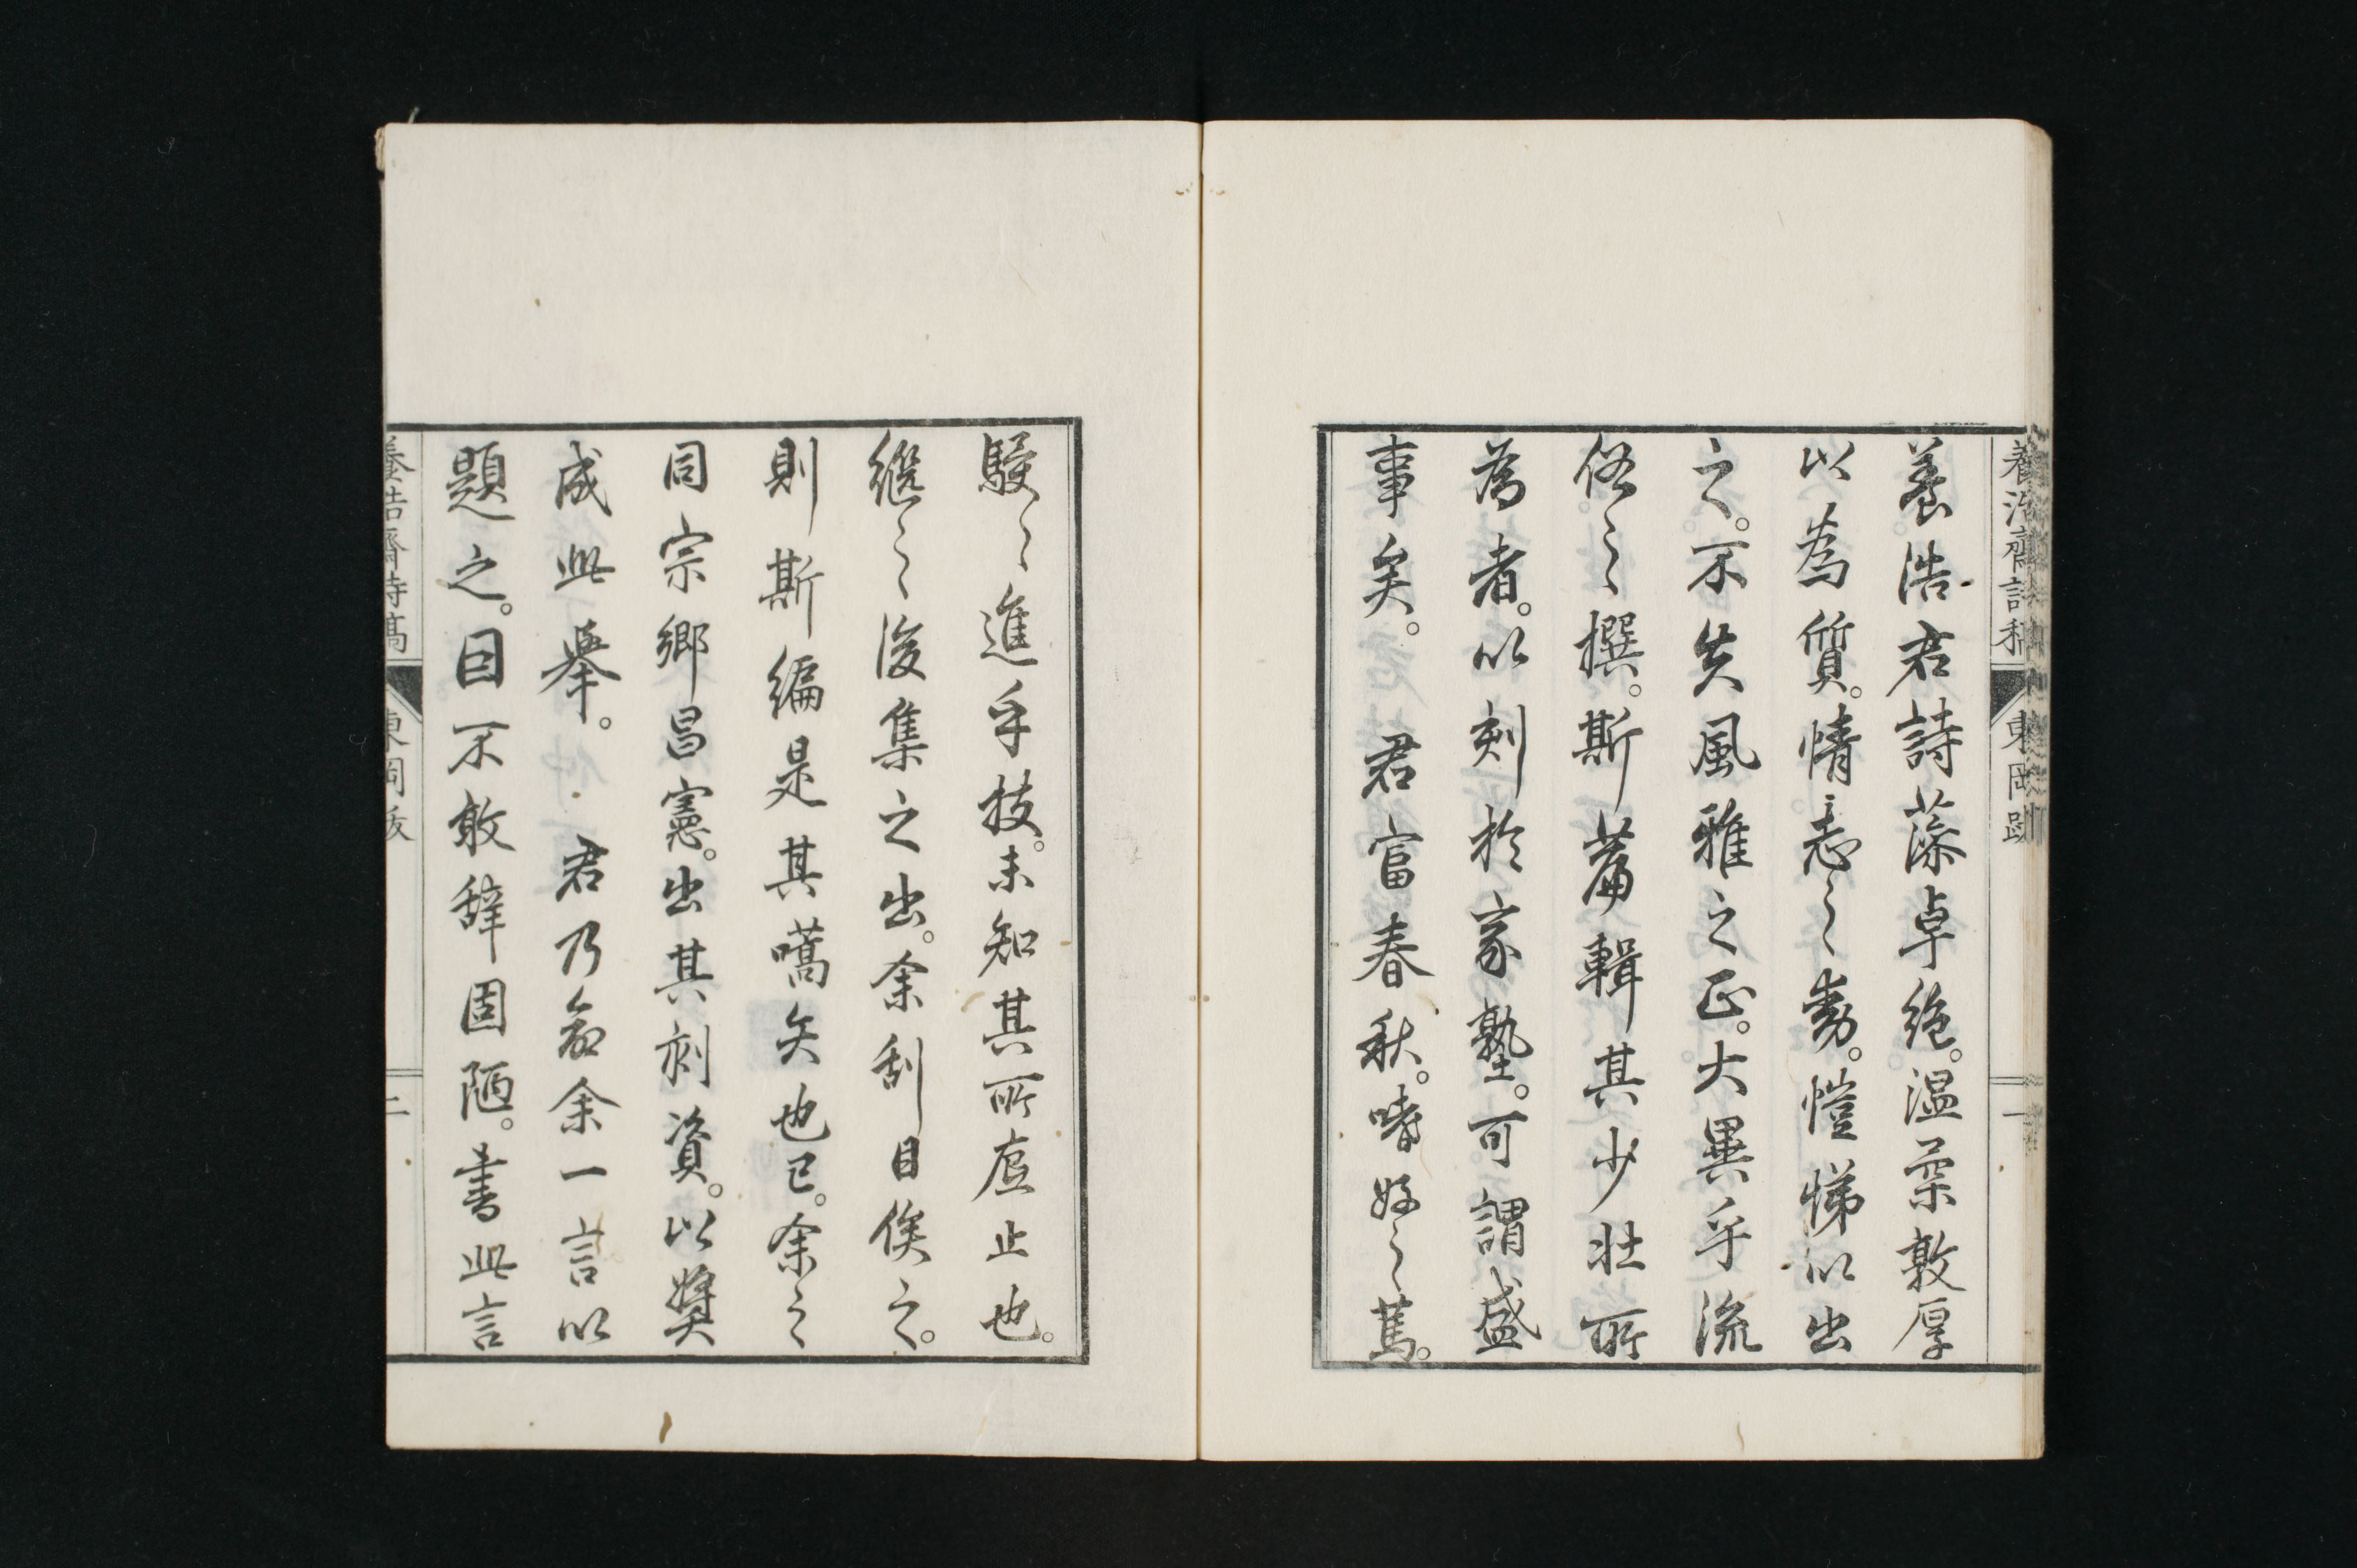 養浩君詩藻卓絶。温柔敦厚
以為質。情志之動。愷悌以出
之。不失風雅之正。大異乎流
俗之撰。斯篇輯其少壯所
為者。以刻於家塾。可謂盛
事矣。 君富春秋。嗜好之篤。
駸々進乎技。未知其所底止也。
繼之後集之出。余刮目俟之。
則斯編是其嚆矢也已。余之
同宗鄉昌憲。出其刻資。以奬
成此舉。 君乃命余一言以
題之。因不敢辭固陋。書此言
養浩齋詩稿
東岡跋
一
養浩齋詩稿
東岡跋
二